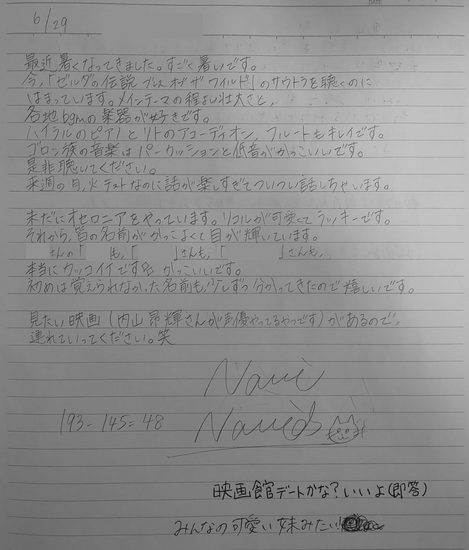 6/29
最近暑くなってきました。すごく暑いです。
今、「ゼルダの伝説 ブレスオブザワイルド」のサウトラを聴くのに
はまっています。メインテーマの程よい壮大さと、
各地bgmの楽器が好きです。
ハイラルのピアノとリトのアコーディオン、フルートもキレイです。
ゴロン族の音楽はパーカッションと低音がかっこいいです。
是非聴いてください。
来週の月,火テストなのに話が楽しすぎてついつい話しちゃいます。
未だにオセロニアをやっています。リコルが可愛くてラッキーです。
それから、皆の名前がかっこよくて目が輝いています。
さんの「 」も、「 」さんも、「 」さんも、
本当にカッコイイです かっこいいです。
初めは覚えられなかった名前も少しずつ分かってきたので嬉しいです。
見たい映画(内山昂輝さんが声優やってるやつです)があるので、
連れていってください。笑
193-145=48
映画館デートかな?いいよ(即答)
みんなの可愛い妹みたい!